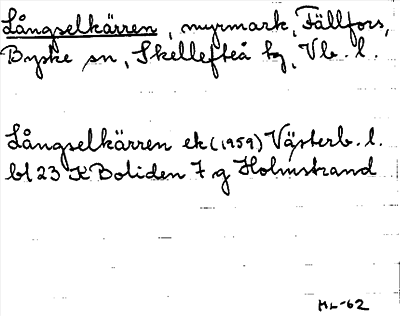 Långselkärren, myrmark, Fällfors,
Byske sn, Skellefteå tg, Vb. l.
Långselkärren ek (1959) Västerb. l.
bl 23 K Boliden 7 g Holmstrand
ML-62